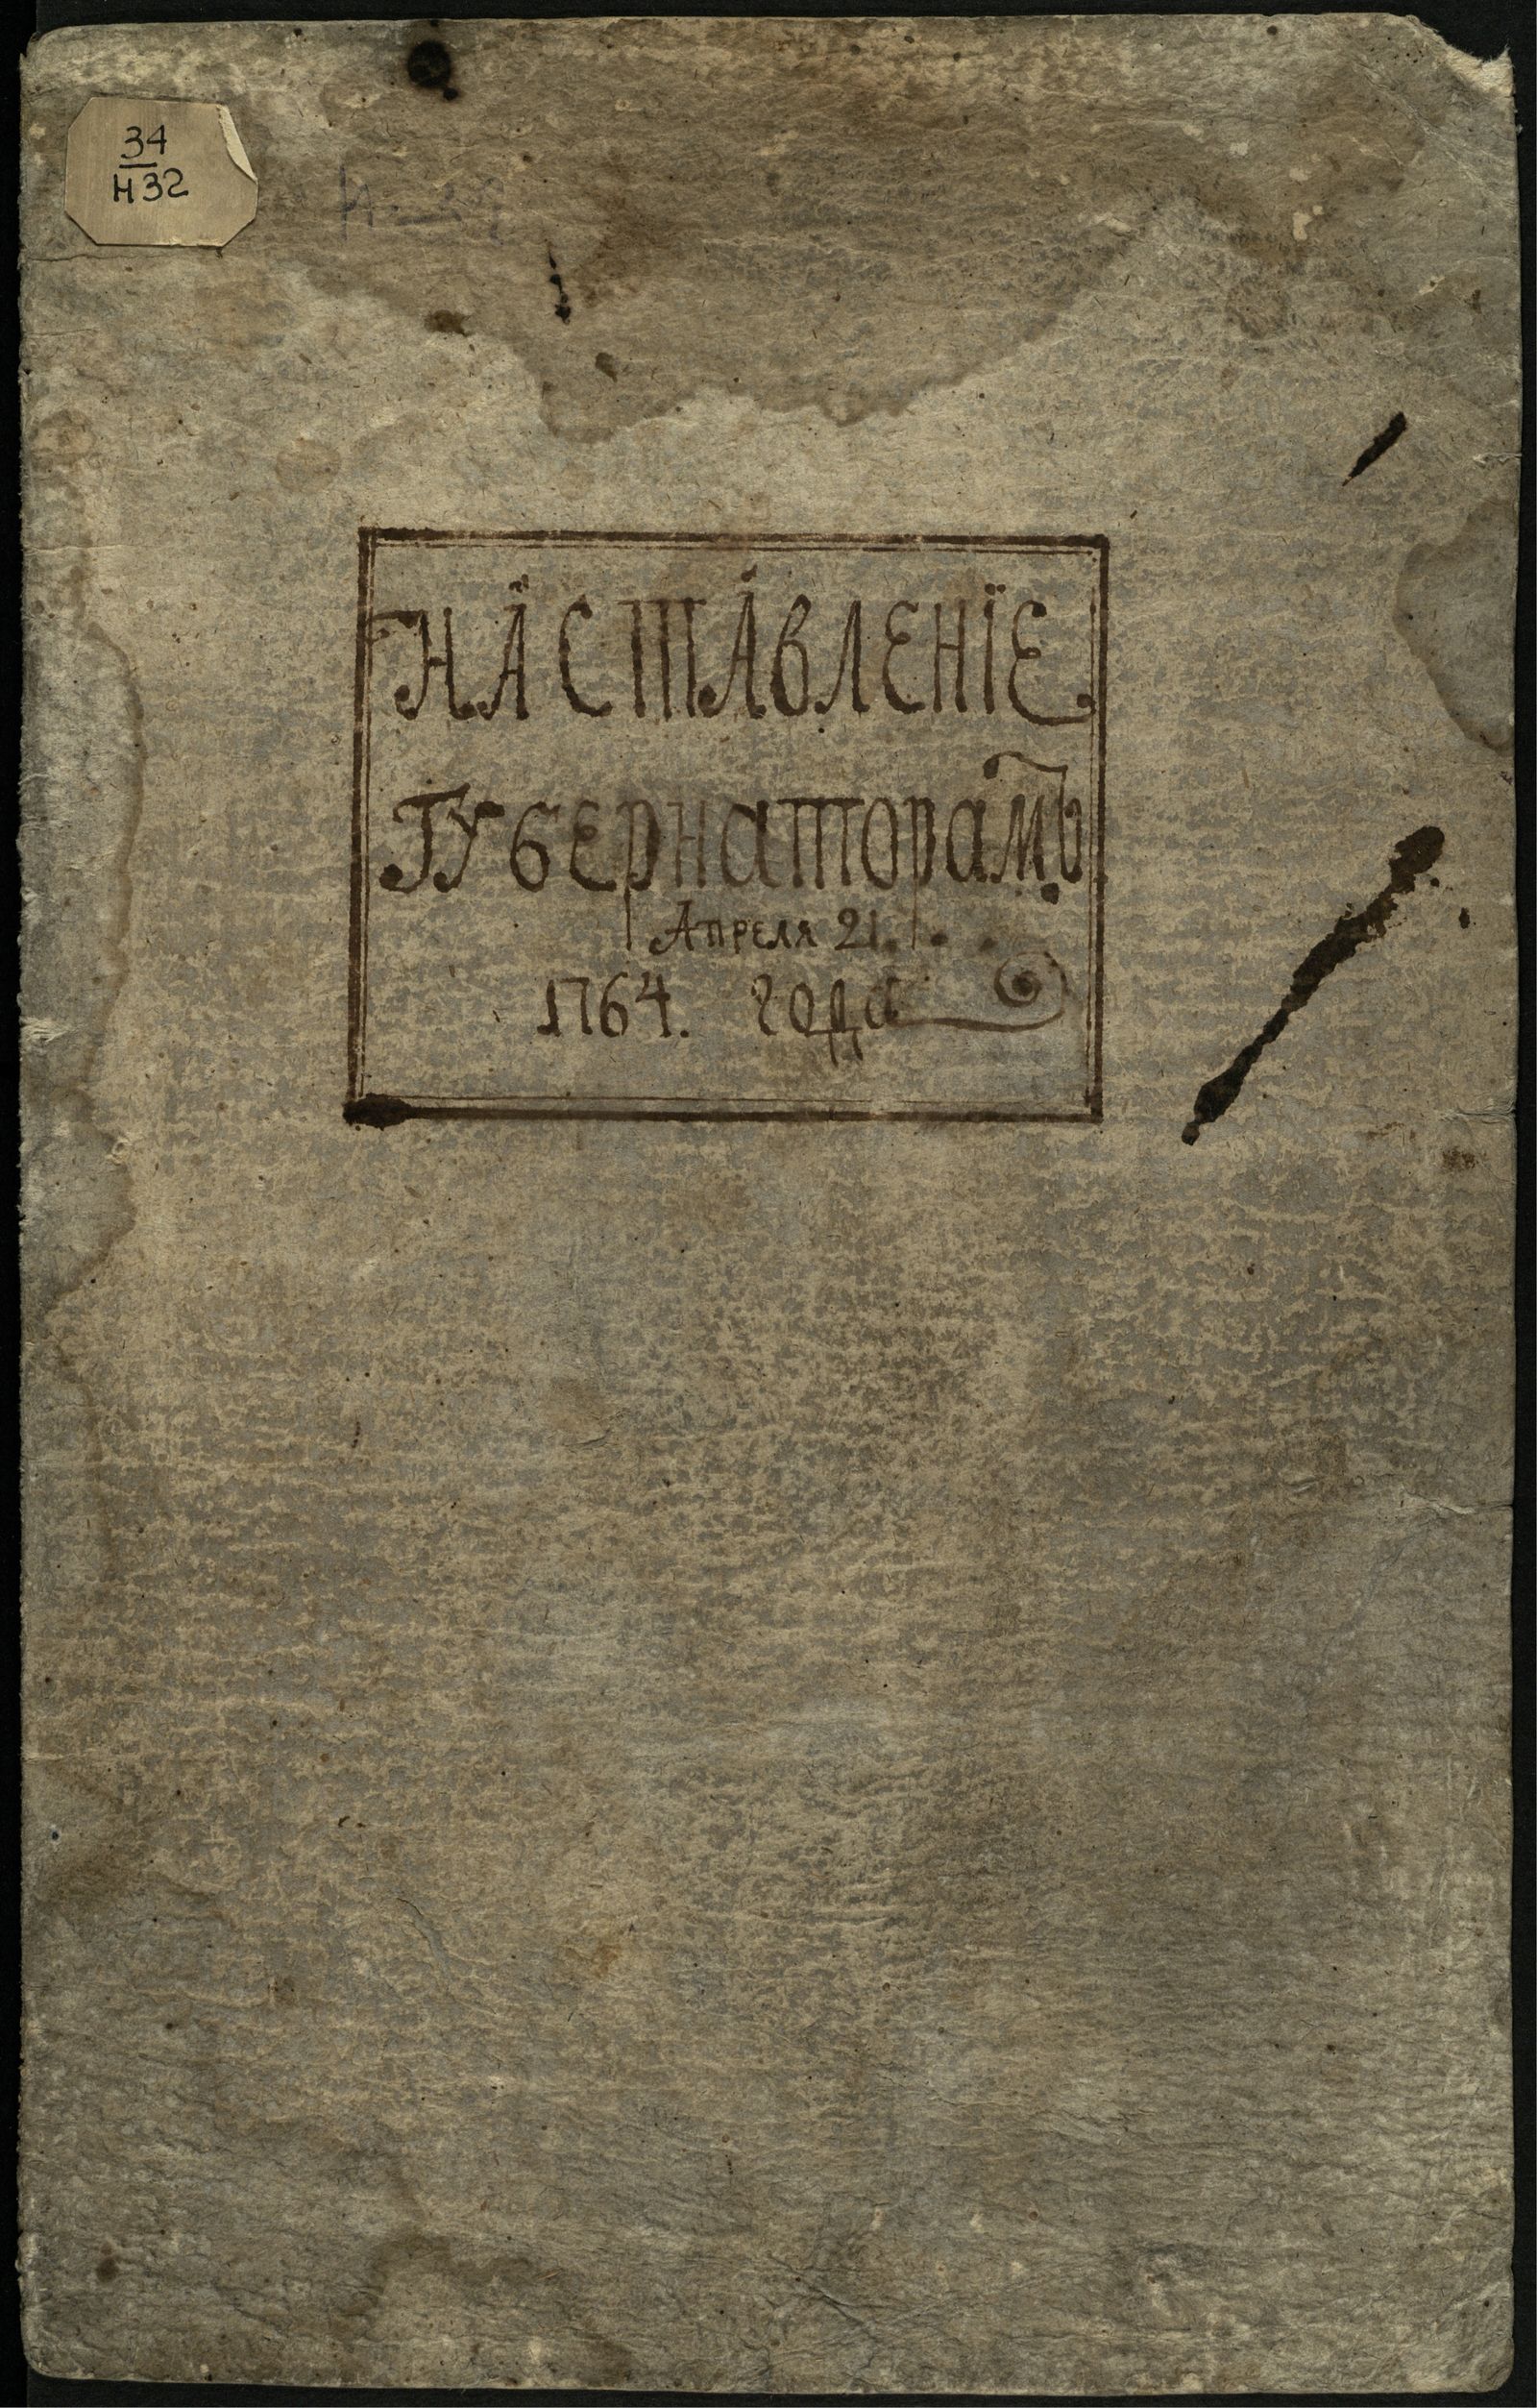 34
Н32
НАСТАВЛЕНЇЕ
ГУБЕРНАТОРАМЪ
Апреля 21.
1764. года